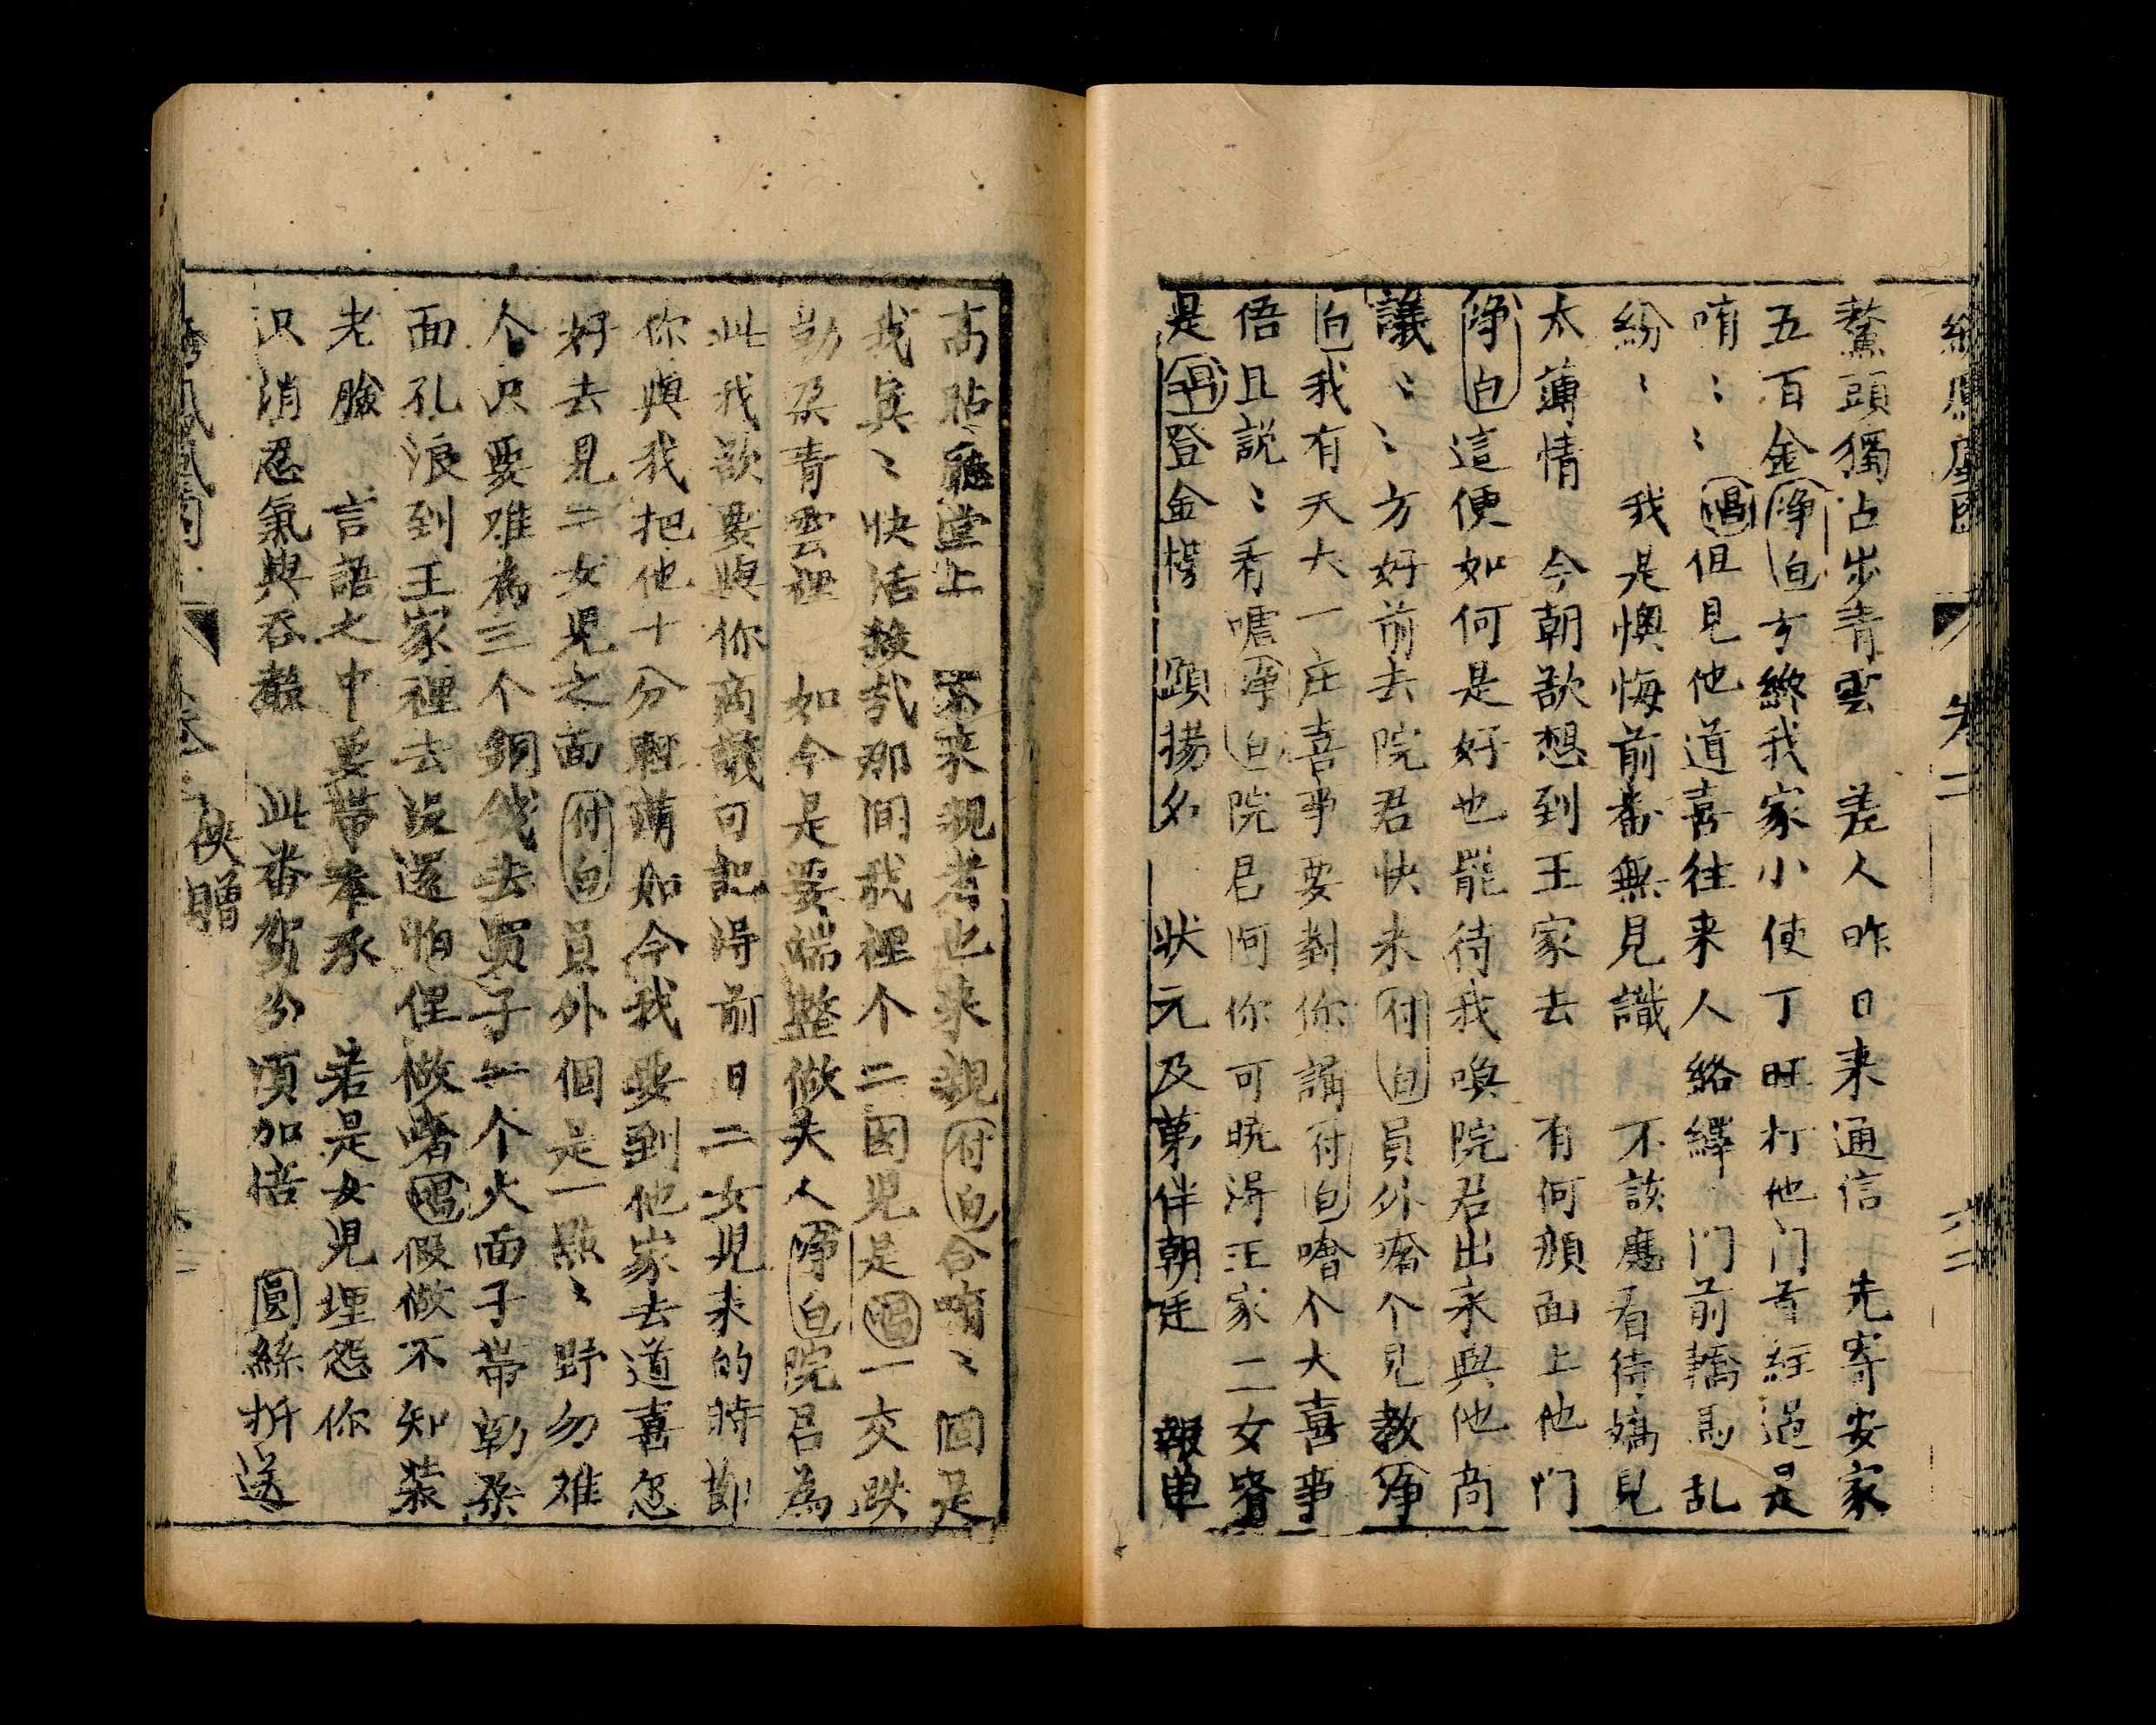 卷二
鰲頭獨占步青雲 差人昨日来通信 先寄安家
五百金淨白方纔我家小使丁旺打他门首經過是
唷〻〻唱但見他道喜往来人絡繹 门前轎馬乱
紛〻 我是懊悔前番無見識 不該應看待嬌見
太薄情 今朝欲想到王家去 有何顏面上他门
淨白這便如何是好也罷待我喚院君出来與他商
議〻〻方好前去院君快来付白員外㾿个見教淨
白我有天大一庄喜事要對你講付白噲个大喜事
悟且説〻看嚧淨白院君阿你可晓淂王家二女壻
是 登金榜 顕揚名 状元及苐伴朝廷 報单
高貼聽堂上 不来親者也来親付白合唷〻囬是
我臭〻快活殺哉那间我裡个二囡児是唱一交跌
勒朶青雲裡 如今是要端整做夫人淨白院君為
此我欲要與你商議可記淂前日二女児来的時節
你與我把他十分輕薄如今我要到他家去道喜忽
好去見二女児之面付白員外個是一點〻野勿难
个只要难為三个銅錢去買子一个大面子带勒朶
面孔浪到王家裡去没還怕俚做嗜唱假做不知裝
老臉 言語之中要带奉承 若是女児埋怨你
只消忍氣與吞聲 此番賀分湏加倍 圎絲折送
卷二 俠贈